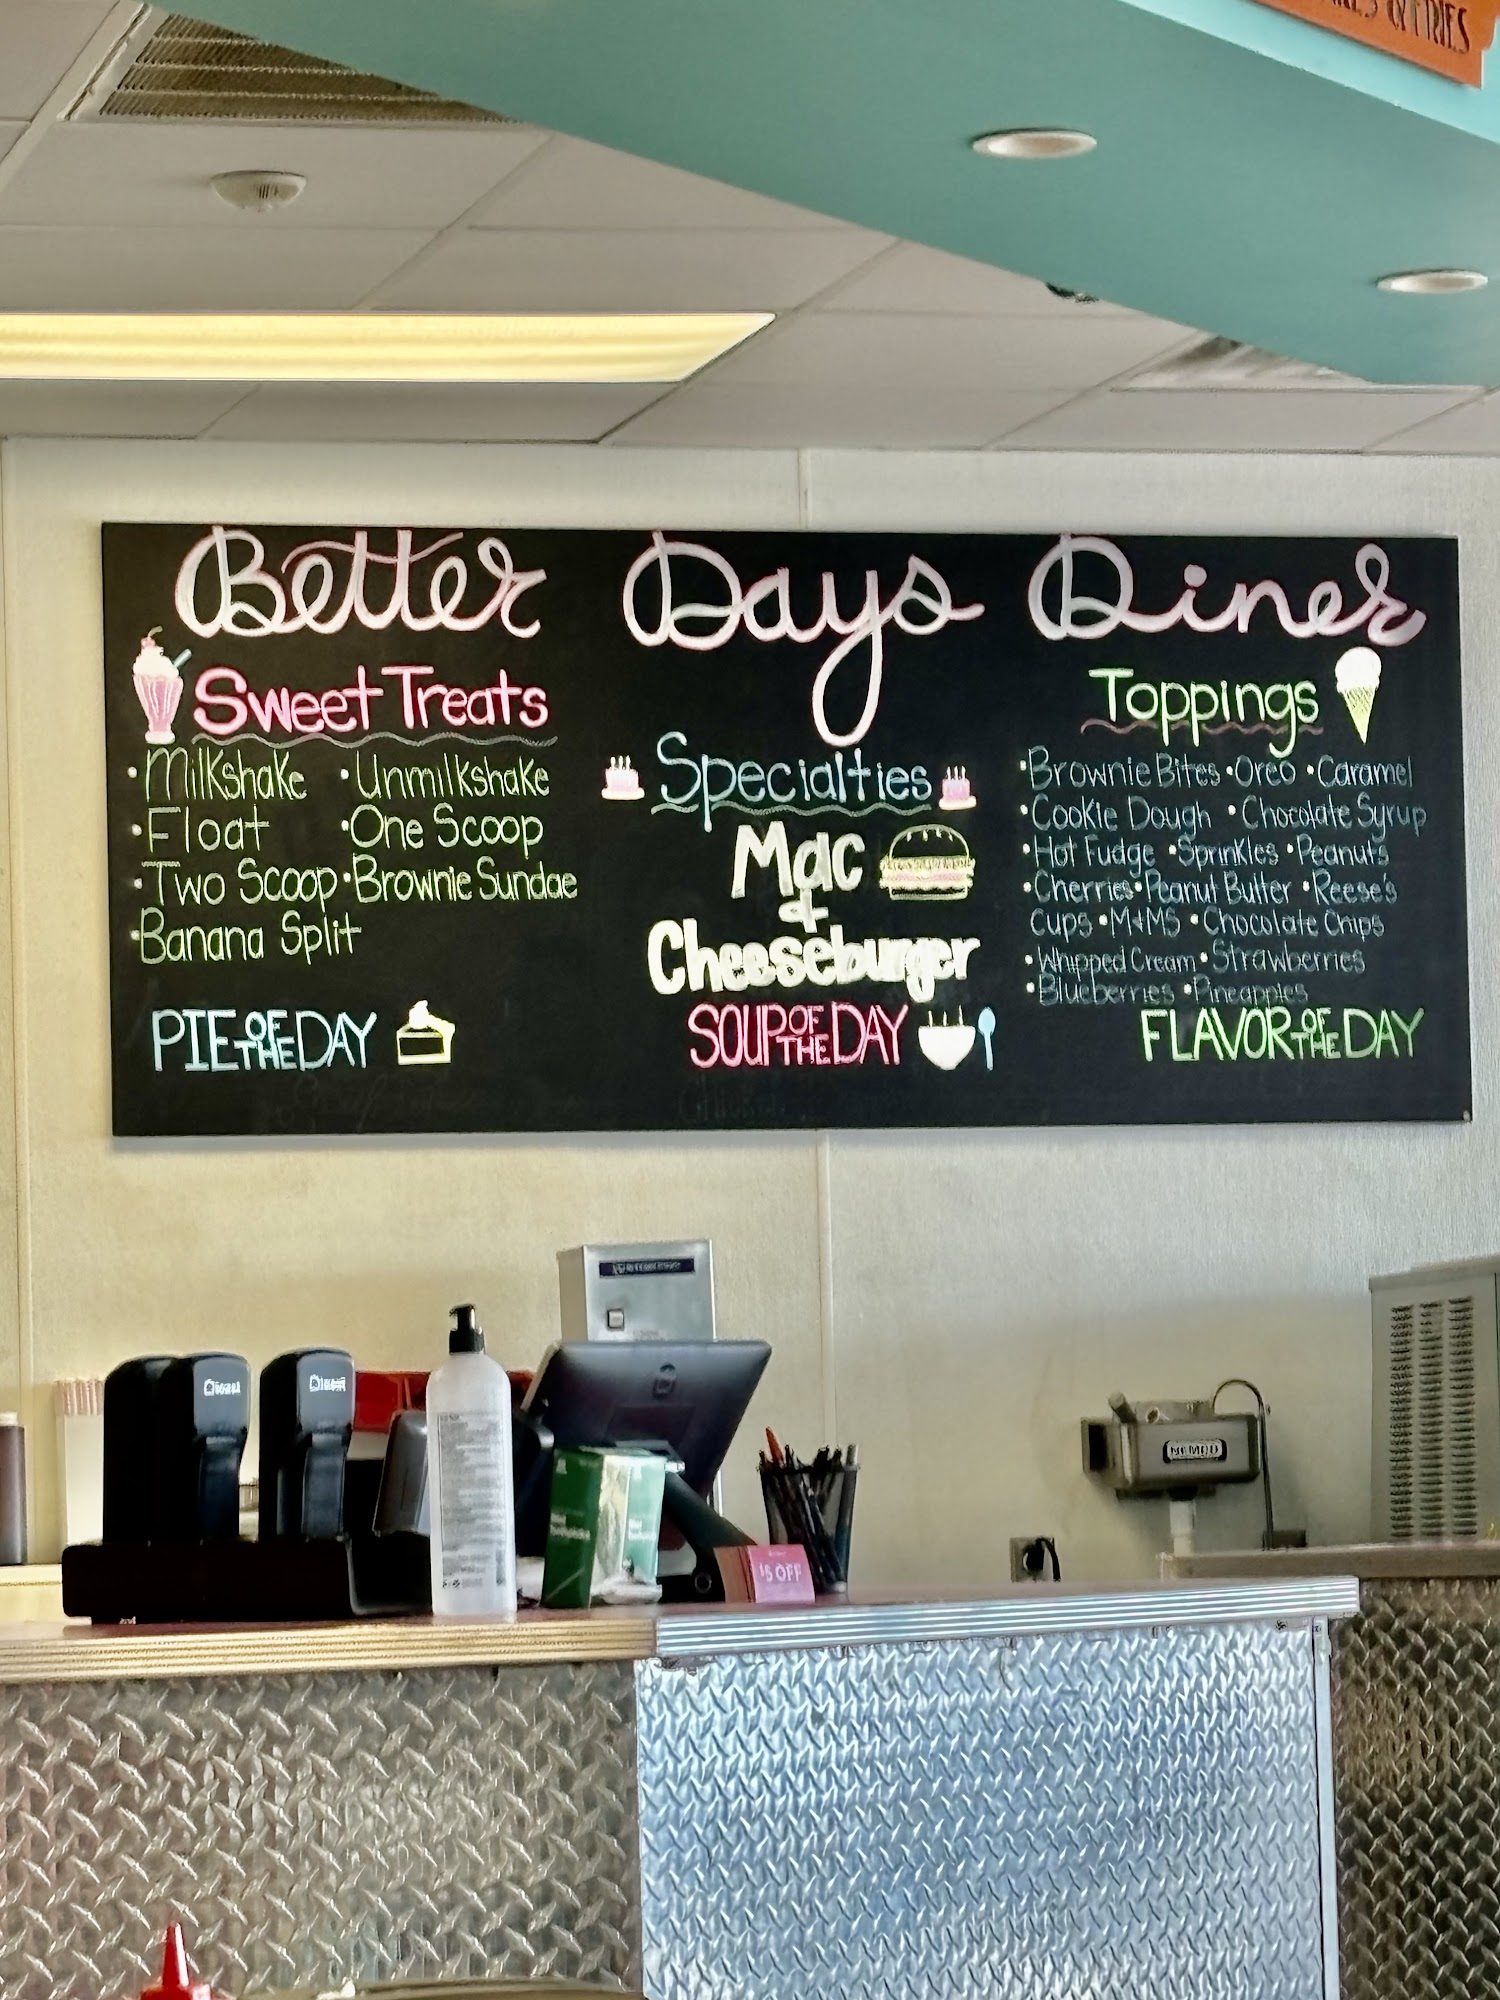 & FRIES
Better Days Diner
Sweet Treats
•Milkshake •Unmilkshake
•Float •One Scoop
•Two Scoop •Brownie Sundae
•Banana Split
PIE OF THE DAY
Specialties
Mac
&
Cheeseburger
SOUP OF THE DAY
Toppings
•Brownie Bites •Oreo •Caramel
•Cookie Dough •Chocolate Syrup
•Hot Fudge •Sprinkles •Peanuts
•Cherries •Peanut Butter •Reese's
Cups •M&MS •Chocolate Chips
•Whipped Cream •Strawberries
•Blueberries •Pineapples
FLAVOR OF THE DAY
NEMCO
$5 OFF